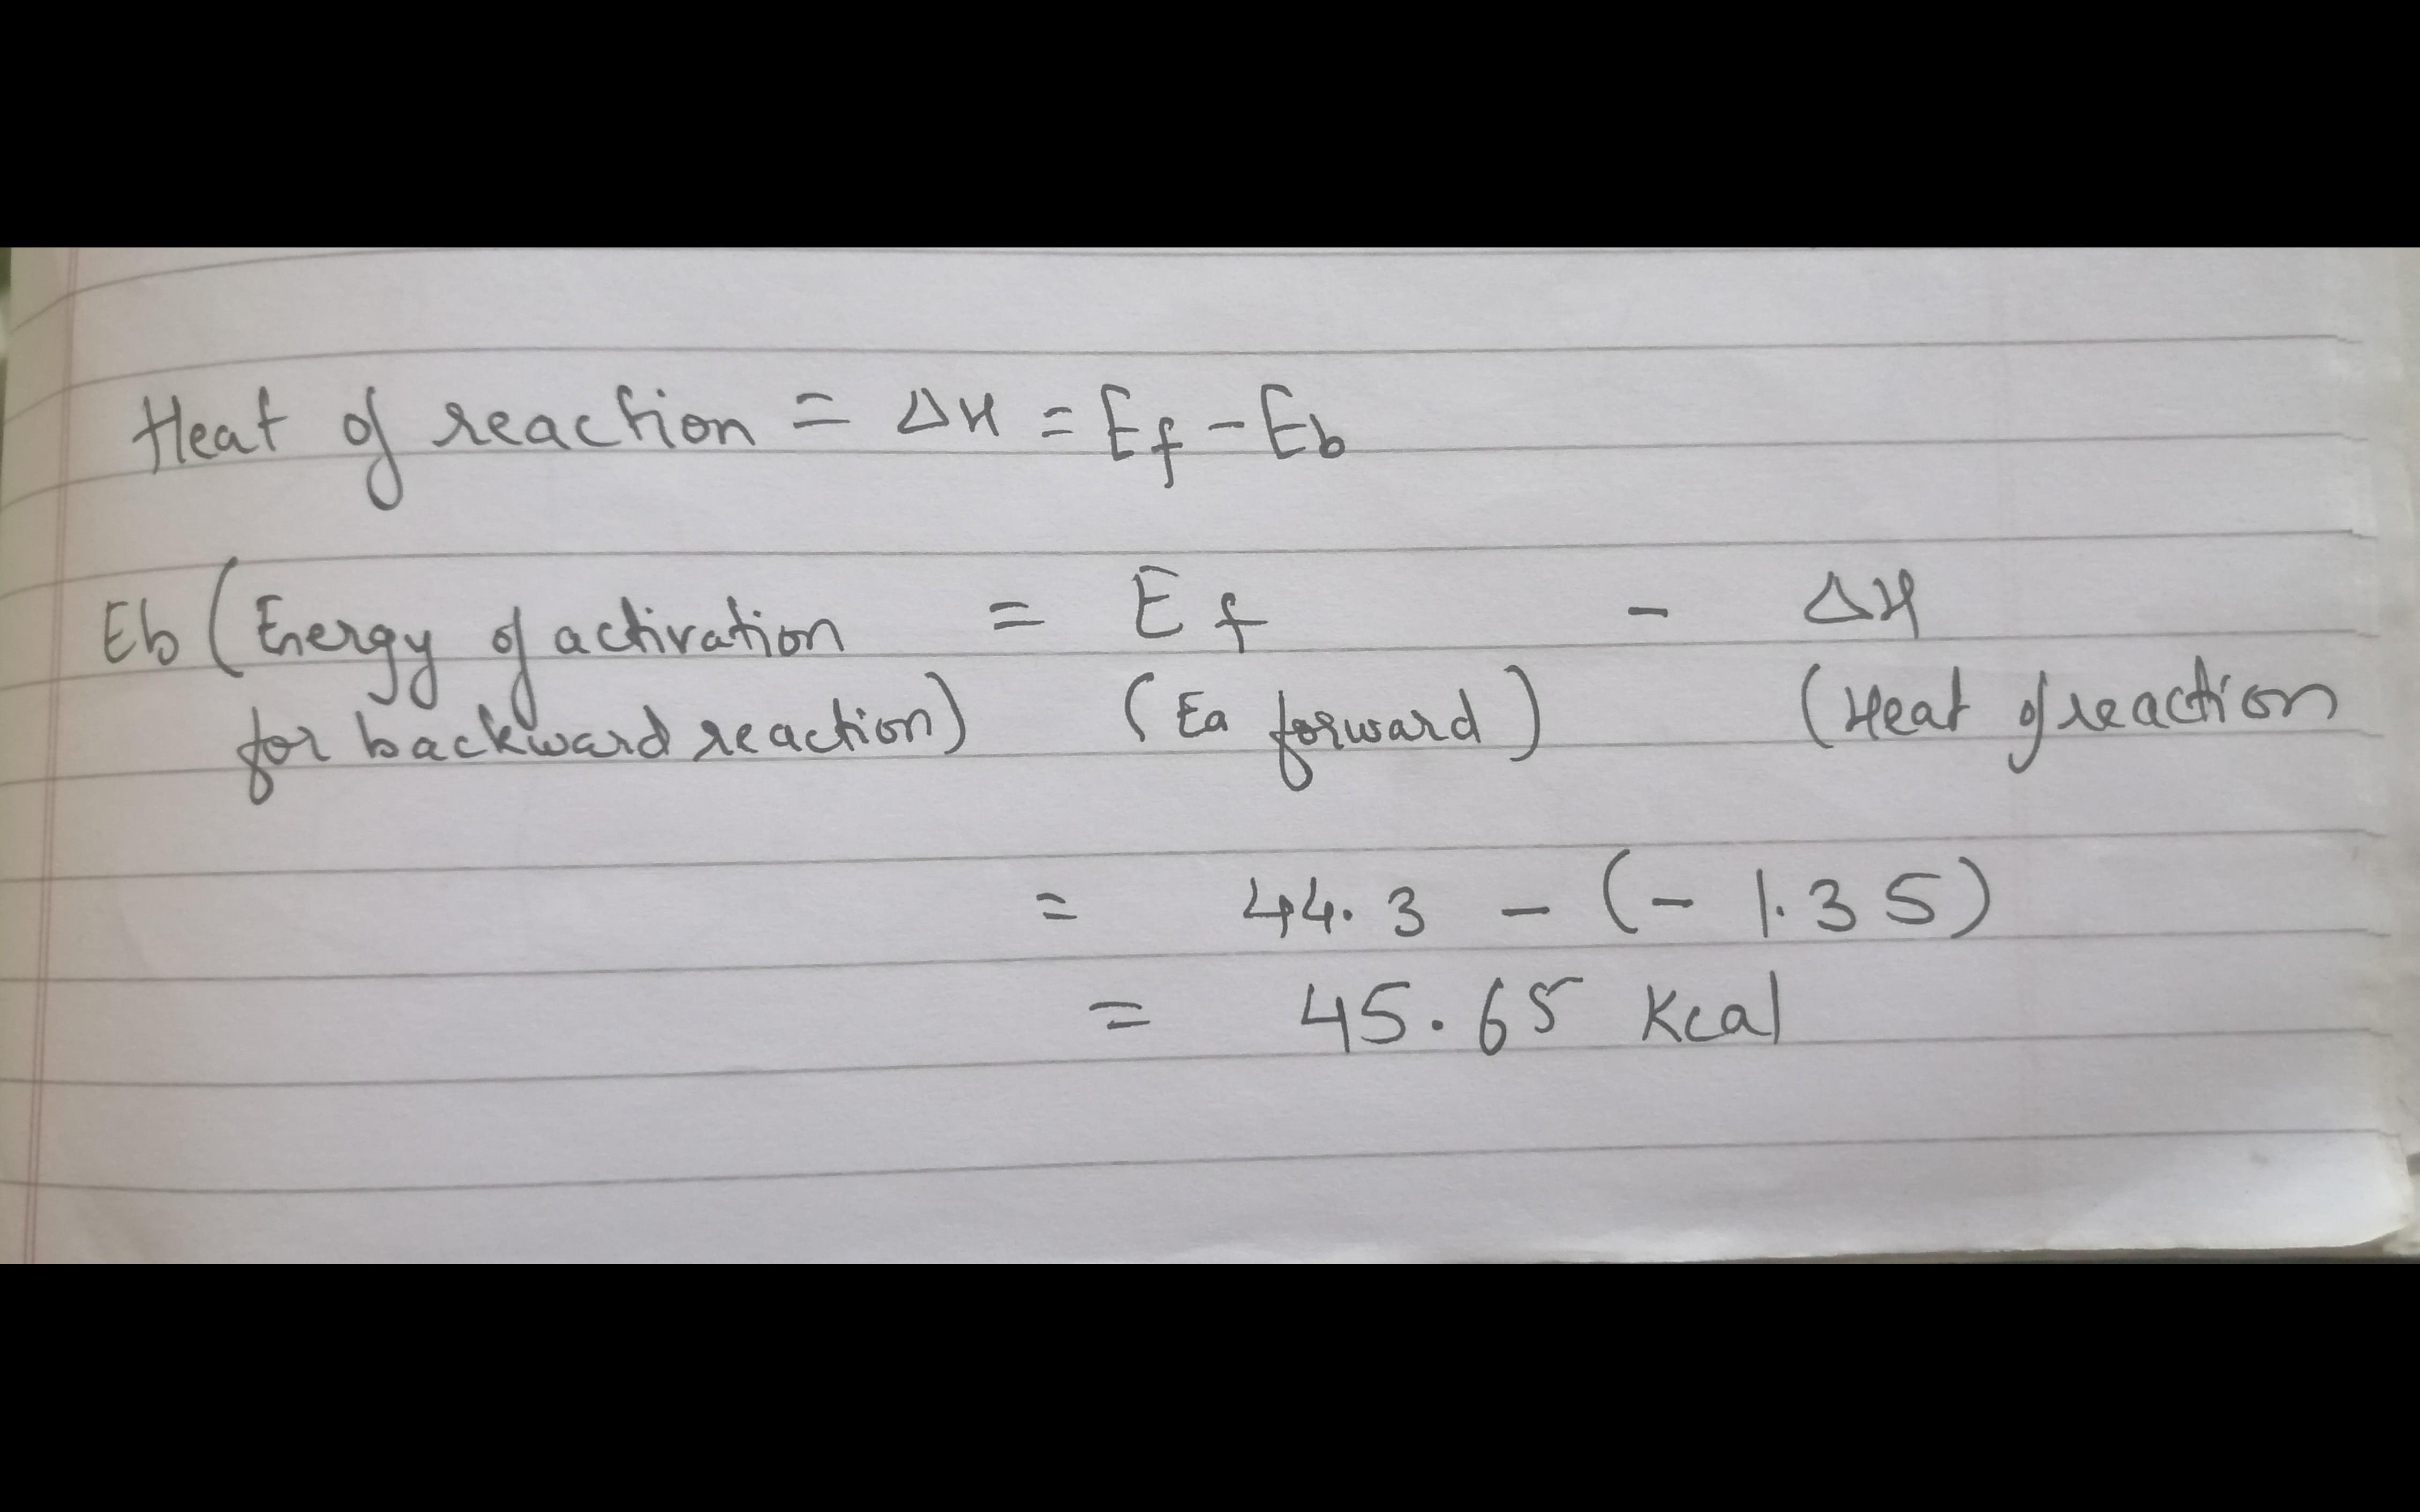 Heat of reaction = ΔH = Ef - Eb
Eb (Energy of activation = Ef - ΔH
for backward reaction) (Ea forward) (Heat of reaction
= 44.3 - (- 1.35)
= 45.65 Kcal